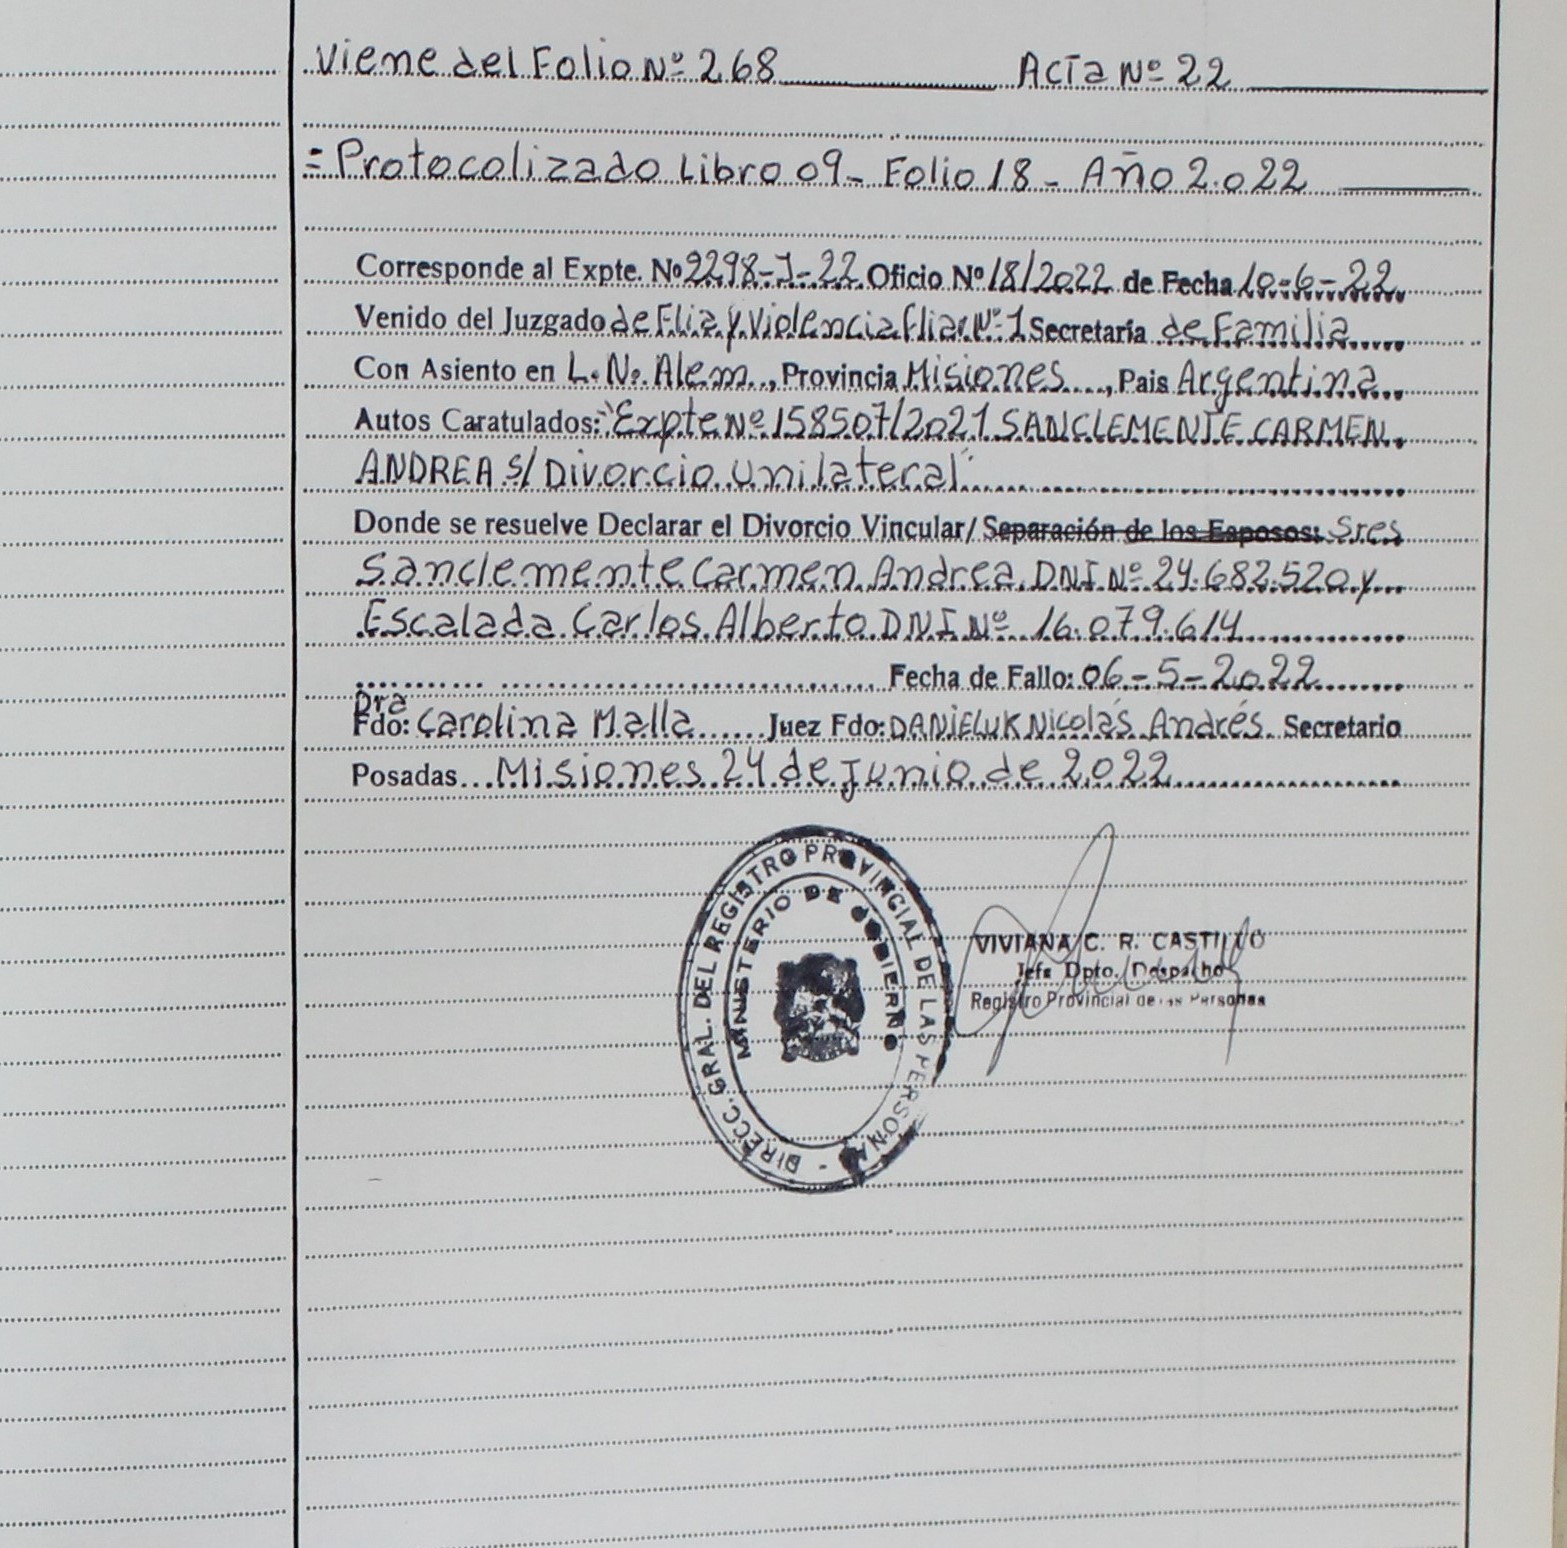 Viene del Folio Nº 268 Acta Nº 22
= Protocolizado Libro 09 - Folio 18 - Año 2.022
Corresponde al Expte. Nº 2298-J-22 Oficio Nº 18/2022 de Fecha 10-6-22
Venido del Juzgado de Flia y Violencia fliar Nº 1 Secretaría de Familia
Con Asiento en L. N. Alem, Provincia Misiones, Pais Argentina
Autos Caratulados: "Expte Nº 158507/2021 SANCLEMENTE CARMEN
ANDREA s/ Divorcio unilateral"
Donde se resuelve Declarar el Divorcio Vincular/ Separación de los Esposos: Sres
Sanclemente Carmen Andrea DNI Nº 24.682.520 y
Escalada Carlos Alberto DNI Nº 16.079.614
Fecha de Fallo: 06-5-2022
Dra
Fdo: Carolina Malla Juez Fdo: DANIELUK Nicolás Andrés Secretario
Posadas Misiones 24 de junio de 2022
DIRECC. GRAL. DEL REGISTRO PROVINCIAL DE LAS PERSONAS
MINISTERIO DE GOBIERNO
VIVIANA C. R. CASTILLO
Jefa Dpto. Despacho
Registro Provincial de las Personas